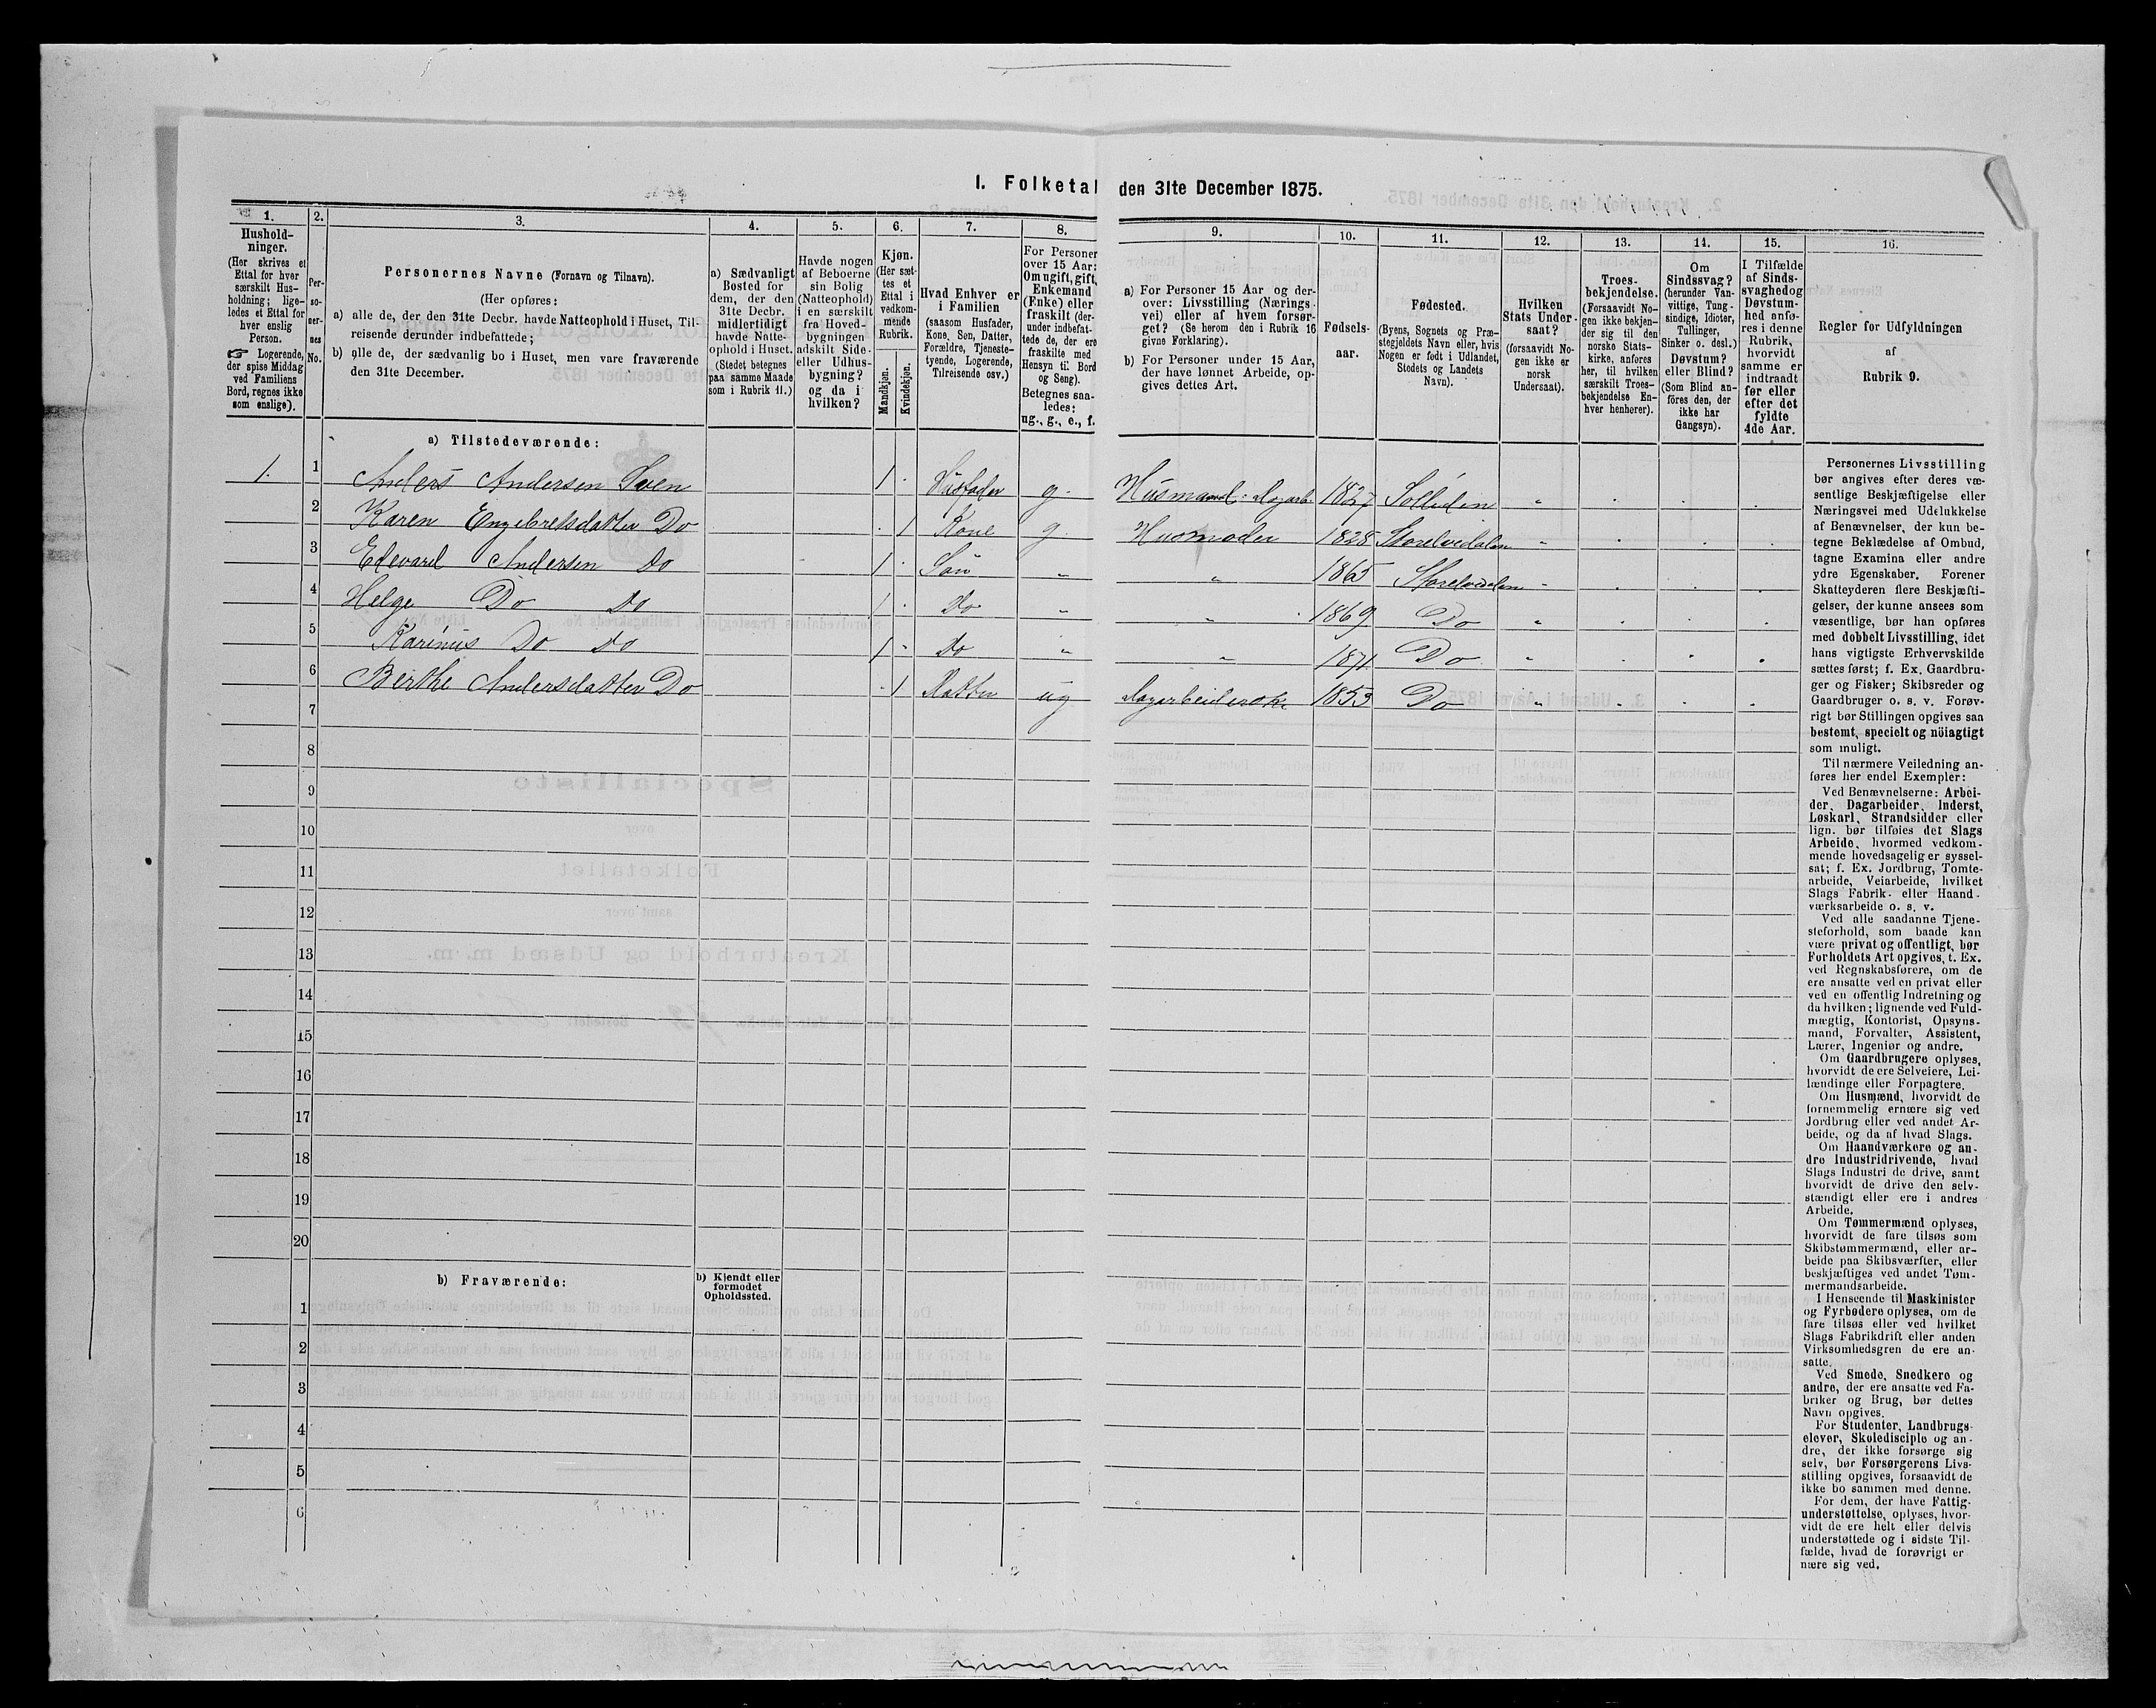 I. Folketal den 31te December 1875.
1. 2. 3. 4. 5. 6. 7. 8. 9. 10. 11. 12. 13. 14. 15. 16.
Hushold-
ninger.
(Her skrives et
Ettal for hver
særskilt Hus-
holdning; lige-
ledes et Ettal for
hver enslig
Person.
☞ Logerende,
der spise Middag
ved Familiens
Bord, regnes ikke
som enslige).
Per-
so-
ner-
nes
No.
Personernes Navne (Fornavn og Tilnavn).
(Her opføres:
a) alle de, der den 31te Decbr. havde Natteophold i Huset, Til-
reisende derunder indbefattede;
b) alle de, der sædvanlig bo i Huset, men vare fraværende
den 31te December.
a) Sædvanligt
Bosted for
dem, der den
31te Decbr.
midlertidigt
havde Natte-
ophold i Huset.
(Stedet betegnes
paa samme Maade
som i Rubrik 11.)
Havde nogen
af Beboerne
sin Bolig
(Natteophold)
i en særskilt
fra Hoved-
bygningen
adskilt Side-
eller Udhus-
bygning?
og da i
hvilken?
Kjøn.
(Her sæt-
tes et
Ettal i
vedkom-
mende
Rubrik.
Mandkjøn.
Kvindekjøn.
Hvad Enhver er
i Familien
(saasom Husfader,
Kone, Søn, Datter,
Forældre, Tjeneste-
tyende, Logerende,
Tilreisende osv.)
For Personer
over 15 Aar:
Om ugift, gift,
Enkemand
(Enke) eller
fraskilt (der-
under indbefat-
tede de, der ere
fraskilte med
Hensyn til Bord
og Seng).
Betegnes saa-
ledes:
ug., g., e., f.
a) For Personer 15 Aar og der-
over: Livsstilling (Nærings-
vei) eller af hvem forsør-
get? (Se herom den i Rubrik 16
givne Forklaring).
b) For Personer under 15 Aar,
der have lønnet Arbeide, op-
gives dettes Art.
Fødsels-
aar.
Fødested.
(Byens, Sognets og Præ-
stegjeldets Navn eller, hvis
Nogen er født i Udlandet,
Stedets og Landets
Navn).
Hvilken
Stats Under-
saat?
(forsaavidt No-
gen ikke er
norsk
Undersaat).
Troes-
bekjendelse.
(Forsaavidt No-
gen ikke bekjen-
der sig til den
norske Stats-
kirke, anføres
her, til hvilken
særskilt Troes-
bekjendelse En-
hver henhører).
Om
Sindssvag?
(herunder Van-
vittige, Tung-
sindige, Idioter,
Tullinger,
Sinker o. desl.)
Døvstum?
eller Blind?
(Som Blind an-
føres den, der
ikke har
Gangsyn).
I Tilfælde
af Sinds-
svaghed og
Døvstum-
hed anfø-
res i denne
Rubrik,
hvorvidt
samme er
indtraadt
før eller
efter det
fyldte
4de Aar.
Regler for Udfyldningen
af
Rubrik 9.
a) Tilstedeværende:
1. 1 Anders Andersen Soen 1 · Husfader g. Husmand: Dagarb. 1827 Sollien „ . . .
2 Karen Engebretsdatter Do · 1 Kone g. Husmoder 1828 Storelvedalen „ . . .
3 Edevard Andersen Do 1 · Søn „ „ 1865 Storelvedalen „ . . .
4 Helge Do Do 1 · Do „ „ 1869 Do „ . . .
5 Karinus Do Do 1 „ Do „ „ 1871 Do „ . . .
6 Berthe Andersdatter Do · 1 Datter ug 1853 Do „ . . .
7
8
9
10
11
12
13
14
15
16
17
18
19
20
b) Fraværende:
b) Kjendt eller
formodet
Opholdssted.
1
2
3
4
5
6
Personernes Livsstilling
bør angives efter deres væ-
sentlige Beskjæftigelse eller
Næringsvei med Udelukkelse
af Benævnelser, der kun be-
tegne Beklædelse af Ombud,
tagne Examina eller andre
ydre Egenskaber. Forener
Skatteyderen flere Beskjæfti-
gelser, der kunne ansees som
væsentlige, bør han opføres
med dobbelt Livsstilling, idet
hans vigtigste Erhvervskilde
sættes først; f. Ex. Gaardbru-
ger og Fisker; Skibsreder og
Gaardbruger o. s. v. Forøv-
rigt bør Stillingen opgives saa
bestemt, specielt og nöiagtigt
som muligt.
Til nærmere Veiledning an-
føres her endel Exempler:
Ved Benævnelserne: Arbei-
der, Dagarbeider, Inderst,
Løskarl, Strandsidder eller
lign. bør tilføies det Slags
Arbeide, hvormed vedkom-
mende hovedsagelig er syssel-
sat; f. Ex. Jordbrug, Tomte-
arbeide, Veiarbeide, hvilket
Slags Fabrik- eller Haand-
værksarbeide o. s. v.
Ved alle saadanne Tjene-
steforhold, som baade kan
være privat og offentligt, bør
Forholdets Art opgives, t. Ex.
ved Regnskabsførere, om de
ere ansatte ved en privat eller
ved en offentlig Indretning og
da hvilken; lignende ved Fuld-
mægtig, Kontorist, Opsyns-
mand, Forvalter, Assistent,
Lærer, Ingeniør og andre.
Om Gaardbrugere oplyses,
hvorvidt de ere Selveiere, Lei-
lændinge eller Forpagtere.
Om Husmænd, hvorvidt de
fornemmelig ernære sig ved
Jordbrug eller ved andet Ar-
beide, og da af hvad Slags.
Om Haandværkere og an-
dre Industridrivende, hvad
Slags Industri de drive, samt
hvorvidt de drive den selv-
stændigt eller ere i andres
Arbeide.
Om Tømmermænd oplyses,
hvorvidt de fare tilsøs som
Skibstømmermænd, eller ar-
beide paa Skibsværfter, eller
beskjæftiges ved andet Tøm-
mermandsarbeide.
I Henseende til Maskinister
og Fyrbødere oplyses, om de
fare tilsøs eller ved hvilket
Slags Fabrikdrift eller anden
Virksomhedsgren de ere an-
satte.
Ved Smede, Snedkere og
andre, der ere ansatte ved Fa-
briker og Brug, bør dettes
Navn opgives.
For Studenter, Landbrugs-
elever, Skoledisciple og an-
dre, der ikke forsørge sig
selv, bør Forsørgerens Livs-
stilling opgives, forsaavidt de
ikke bo sammen med denne.
For dem, der have Fattig-
understøttelse, oplyses, hvor-
vidt de ere helt eller delvis
understøttede og i sidste Til-
fælde, hvad de forøvrigt er
nære sig ved.